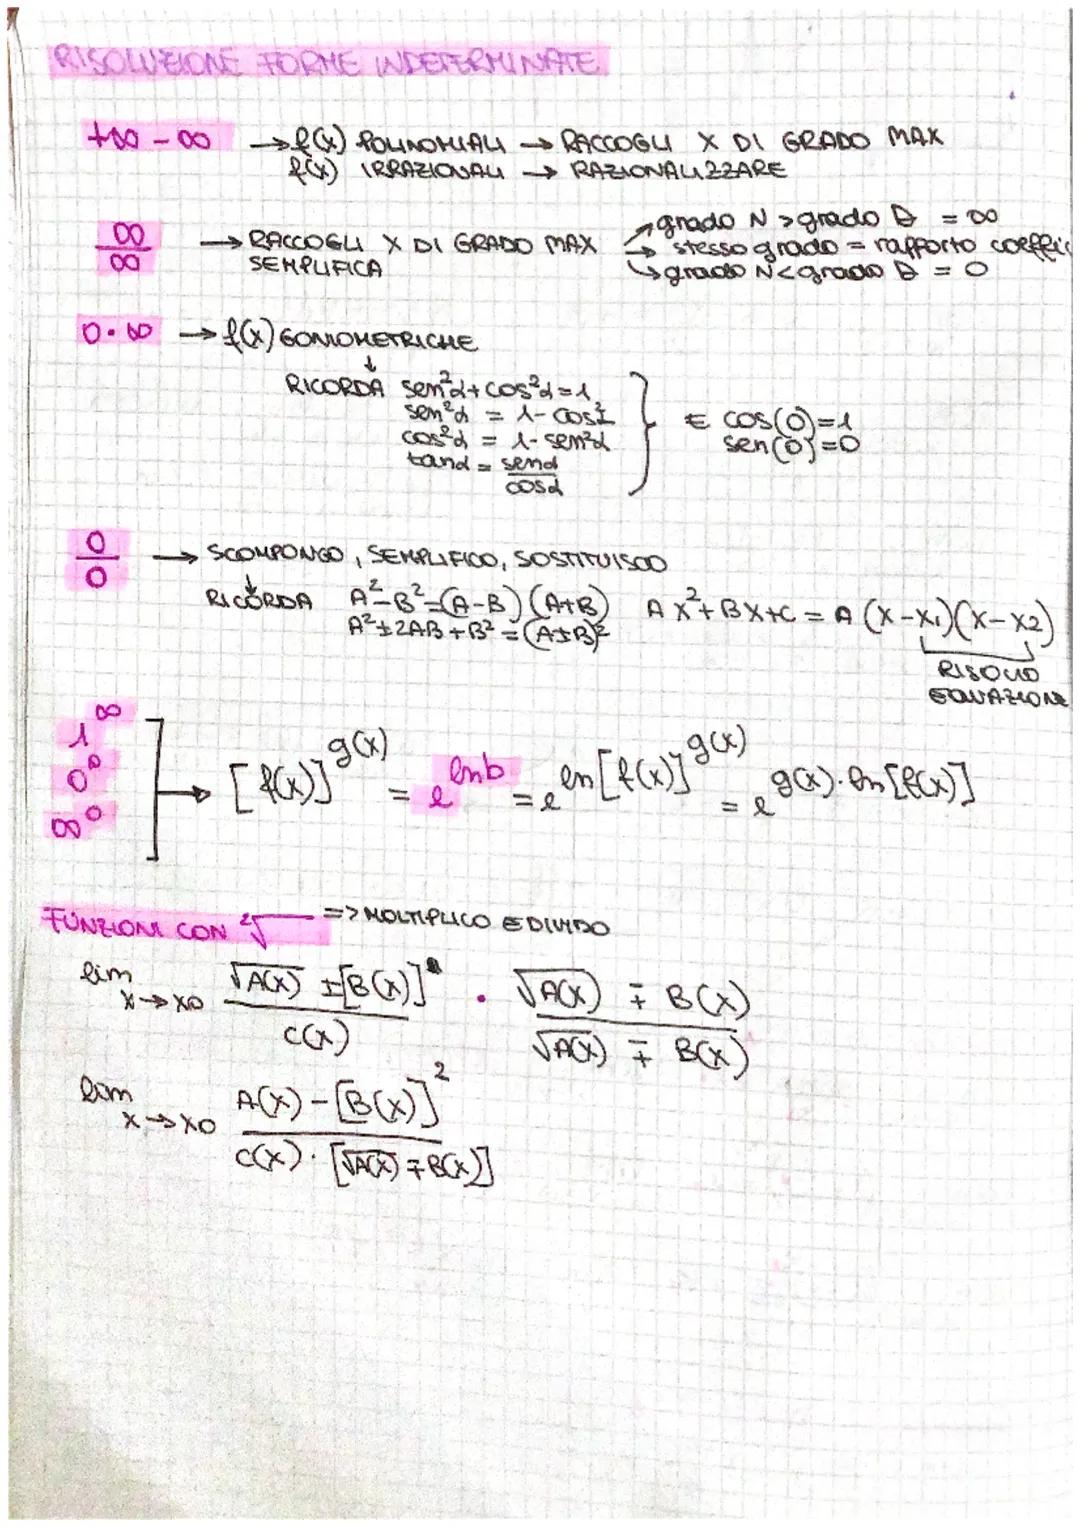 RISOLUZIONE FORME INDETERMINATE
+∞ - ∞ → f(x) POLINOMIALI → RACCOGLI X DI GRADO MAX
f(x) IRRAZIONALI → RAZIONALIZZARE
∞/∞ → RACCOGLI X DI GRADO MAX
SEMPLIFICA
↗ grado N > grado D = ∞
→ stesso grado = rapporto coeffic
↳ grado N < grado D = 0
0·∞ → f(x) GONIOMETRICHE
↓
RICORDA sen²α + cos²α = 1
sen²α = 1 - cos²
cos²α = 1 - sen²α
tanα = senα/cosα
} E cos(0)=1
sen(0)=0
0/0 → SCOMPONGO, SEMPLIFICO, SOSTITUISCO
↓
RICORDA A²-B²=(A-B)(A+B) AX²+BX+C = A(X-X1)(X-X2)
A²±2AB+B²=(A±B)²
RISOLVO
EQUAZIONE
1^∞
0^0
∞^0
] → [f(x)]^g(x) = e^lnb = e^ln[f(x)]^g(x) = e^g(x)·ln[f(x)]
FUNZIONI CON ²√ => MOLTIPLICO E DIVIDO
lim x→x0 (√A(x) ± [B(x)])/C(x) · (√A(x) ∓ B(x))/(√A(x) ∓ B(x))
lim x→x0 (A(x) - [B(x)]²)/(C(x)·[√A(x) ∓ B(x)])